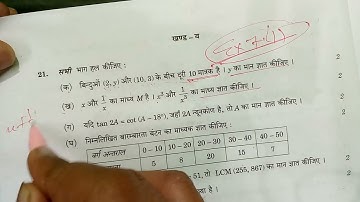 खण्ड – य
21. सभी भाग हल कीजिए :
(क) बिन्दुओं (2, y) और (10, 3) के बीच दूरी 10 मात्रक है। y का मान ज्ञात कीजिए। 2
(ख) x और 1/x का माध्य M है। x² और 1/x² का माध्य ज्ञात कीजिए। 2
(ग) यदि tan 2A = cot (A – 18°), जहाँ 2A न्यूनकोण है, तो A का मान ज्ञात कीजिए। 2
(घ) निम्नलिखित बारम्बारता बंटन का माध्यक ज्ञात कीजिए :
वर्ग अन्तराल 0 – 10 10 – 20 20 – 30 30 – 40 40 – 50
5 8 20 15 7
51, तो LCM (255, 867) का मान ज्ञात कीजिए।